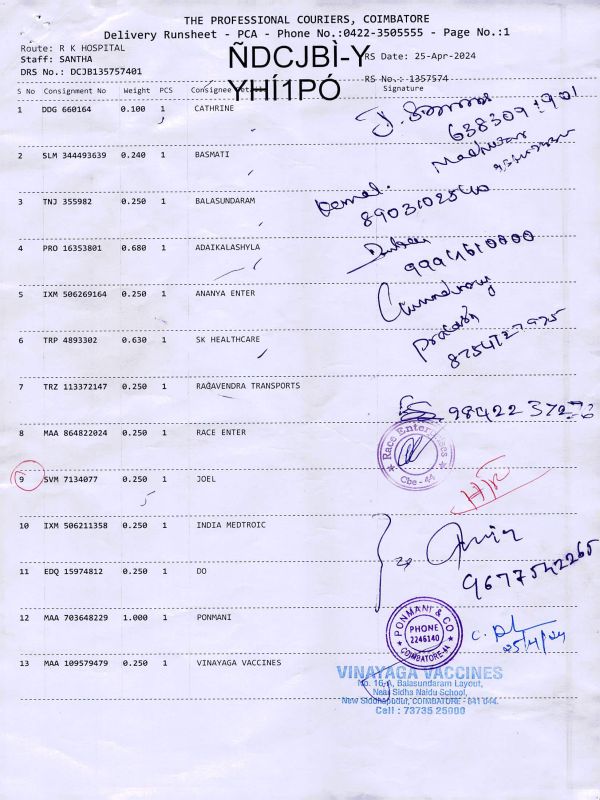 THE PROFESSIONAL COURIERS, COIMBATORE
Delivery Runsheet - PCA - Phone No.:0422-3505555 - Page No.:1
Route: R K HOSPITAL
Staff: SANTHA
DRS No.: DCJB135757401
ÑDCJBÌ-Y
YHÍ1PÓ
RS Date: 25-Apr-2024
RS No.: 1357574
S No Consignment No Weight PCS Consignee Details Signature
1 DDG 660164 0.100 1 CATHRINE
6383091901
2 SLM 344493639 0.240 1 BASMATI
3 TNJ 355982 0.250 1 BALASUNDARAM
8903102540
4 PRO 16353801 0.680 1 ADAIKALASHYLA
9994610000
5 IXM 506269164 0.250 1 ANANYA ENTER
6 TRP 4893302 0.630 1 SK HEALTHCARE
Prakash
8754727975
7 TRZ 113372147 0.250 1 RAGAVENDRA TRANSPORTS
98422 37273
8 MAA 864822024 0.250 1 RACE ENTER
Race Enterprises
Cbe - 44
9 SVM 7134077 0.250 1 JOEL
10 IXM 506211358 0.250 1 INDIA MEDTROIC
11 EDQ 15974812 0.250 1 DO
9677542265
12 MAA 703648229 1.000 1 PONMANI
PONMANI & CO
PHONE
2246140
COIMBATORE-44
25/4/24
13 MAA 109579479 0.250 1 VINAYAGA VACCINES
VINAYAGA VACCINES
No. 16-A, Balasundaram Layout,
Near Sidha Naidu School,
New Siddhapudur, COIMBATORE - 641 044.
Cell : 73735 25000